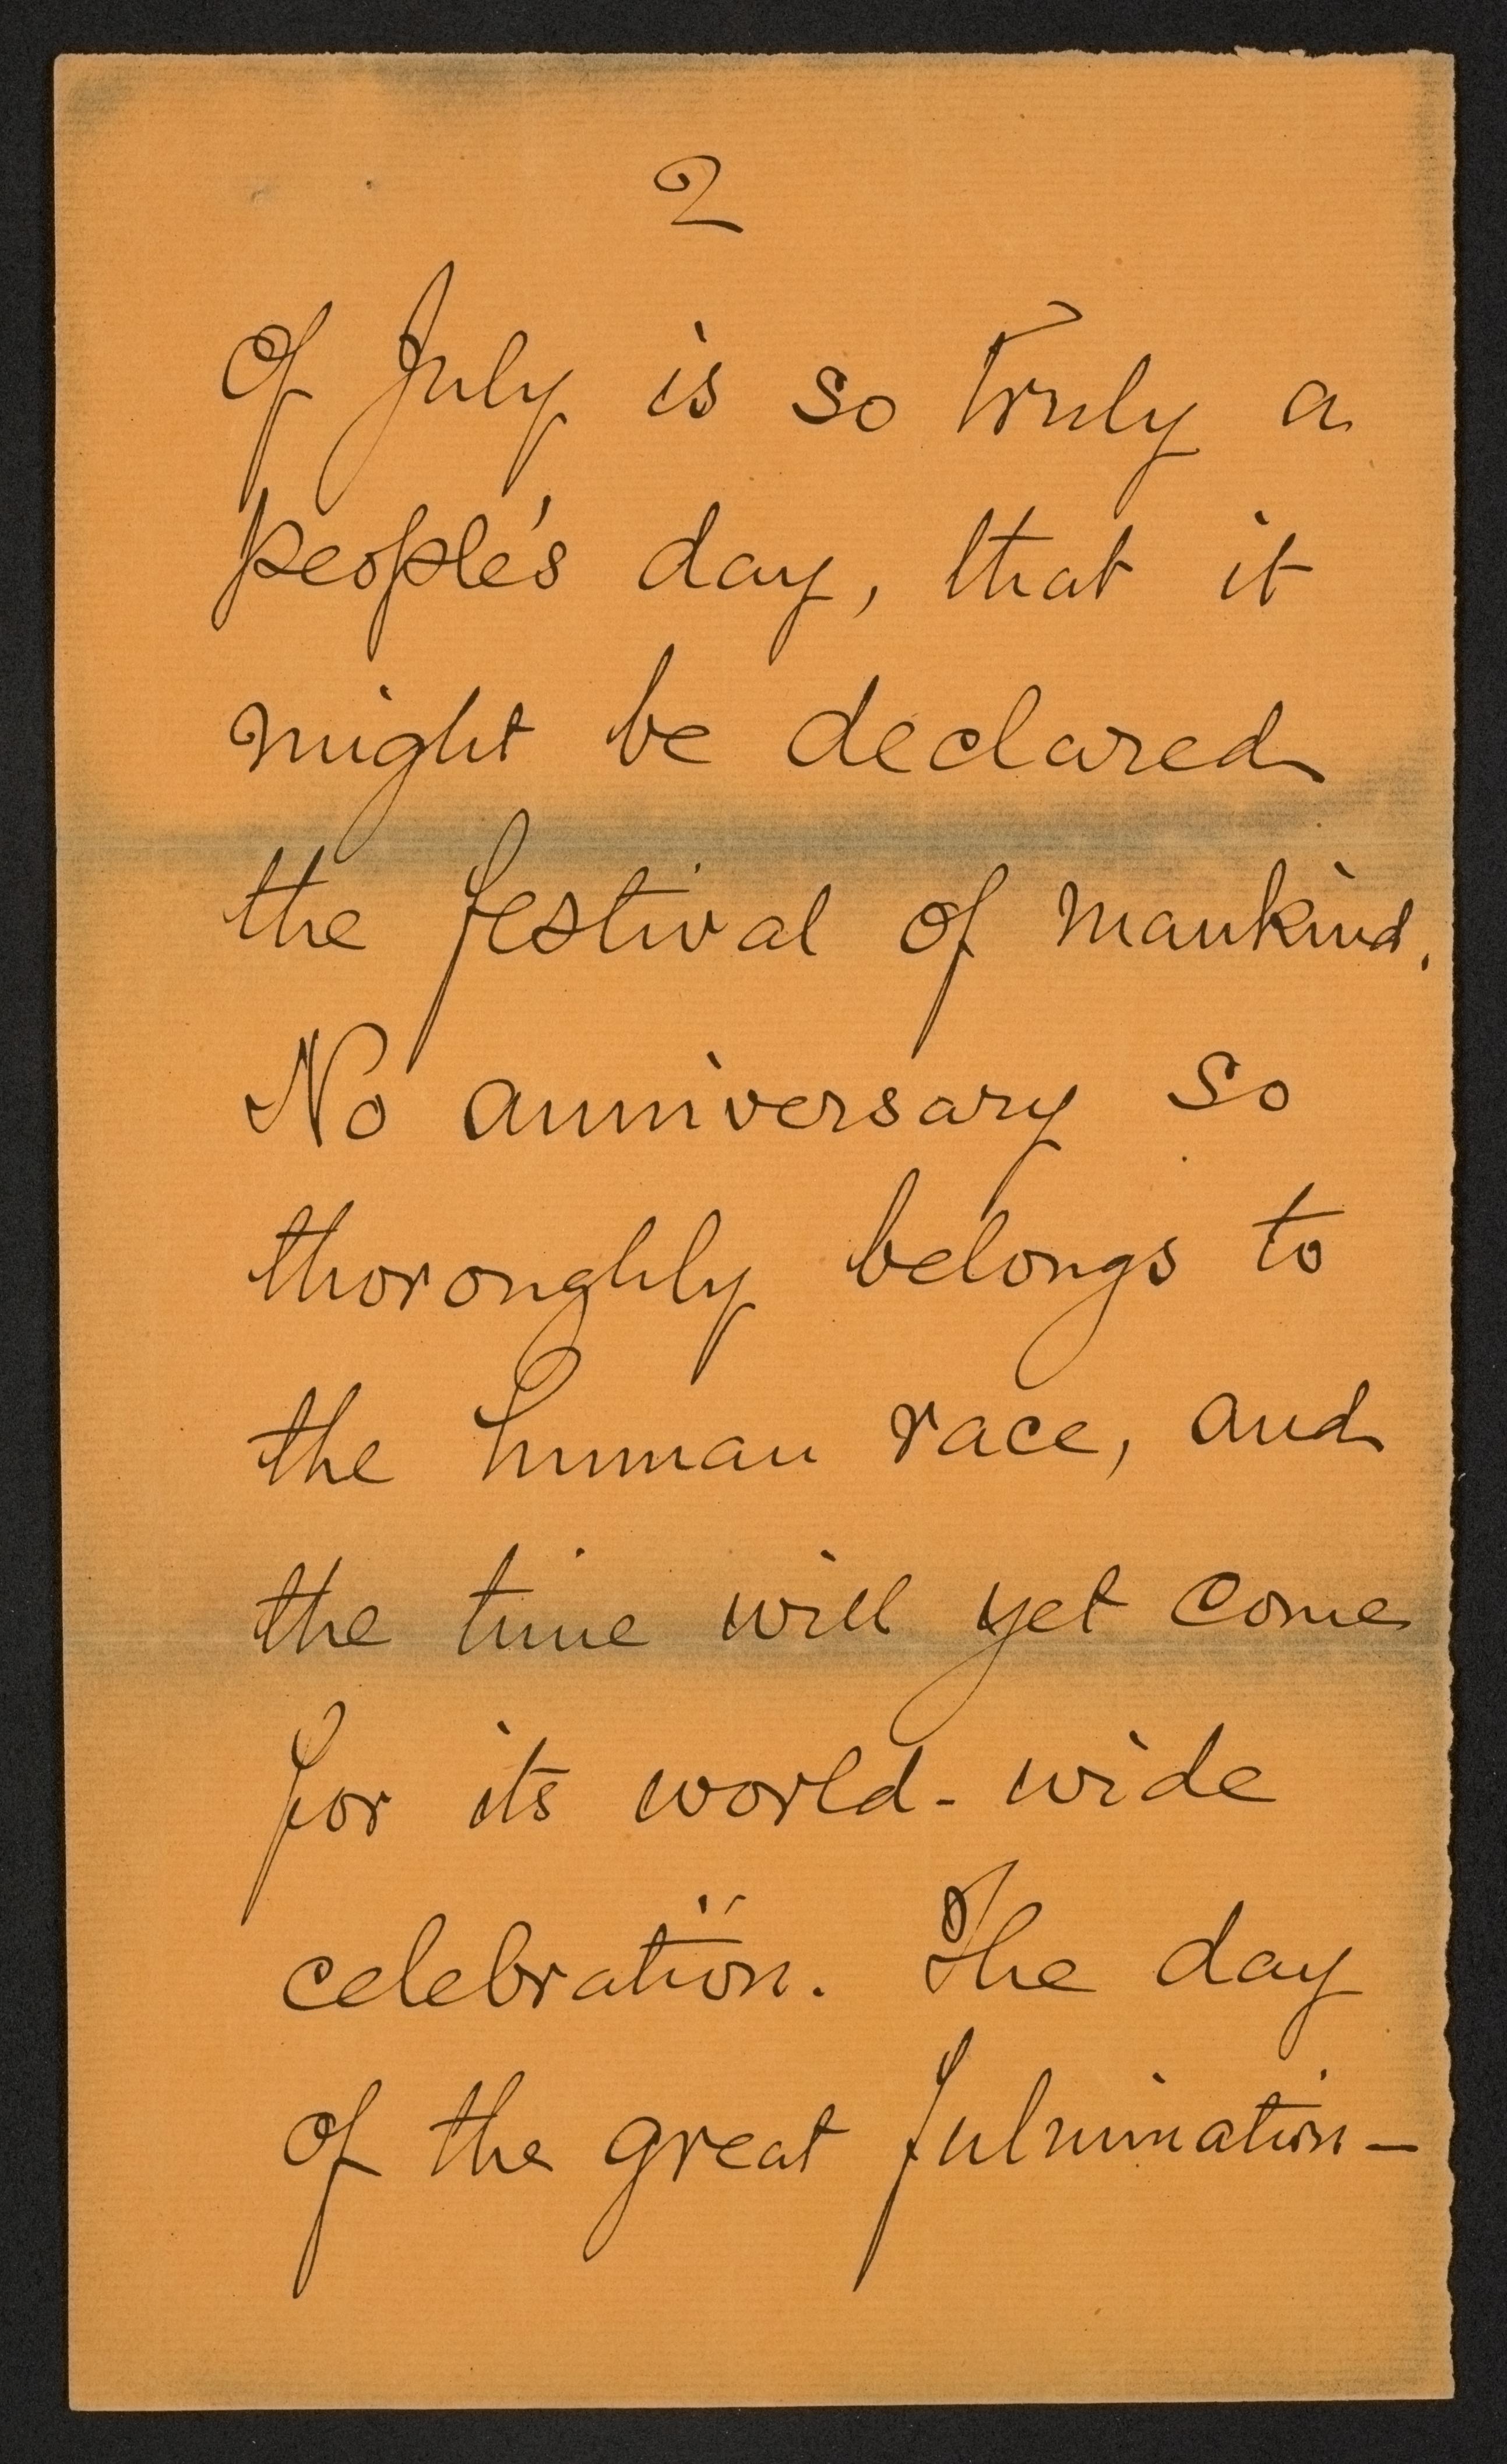 2
of July is so truly a
people's day, that it
might be declared
the festival of mankind.
No anniversary so
thoroughly belongs to
the human race, and
the time will yet come
for its world-wide
celebration. The day
of the great fulmination—